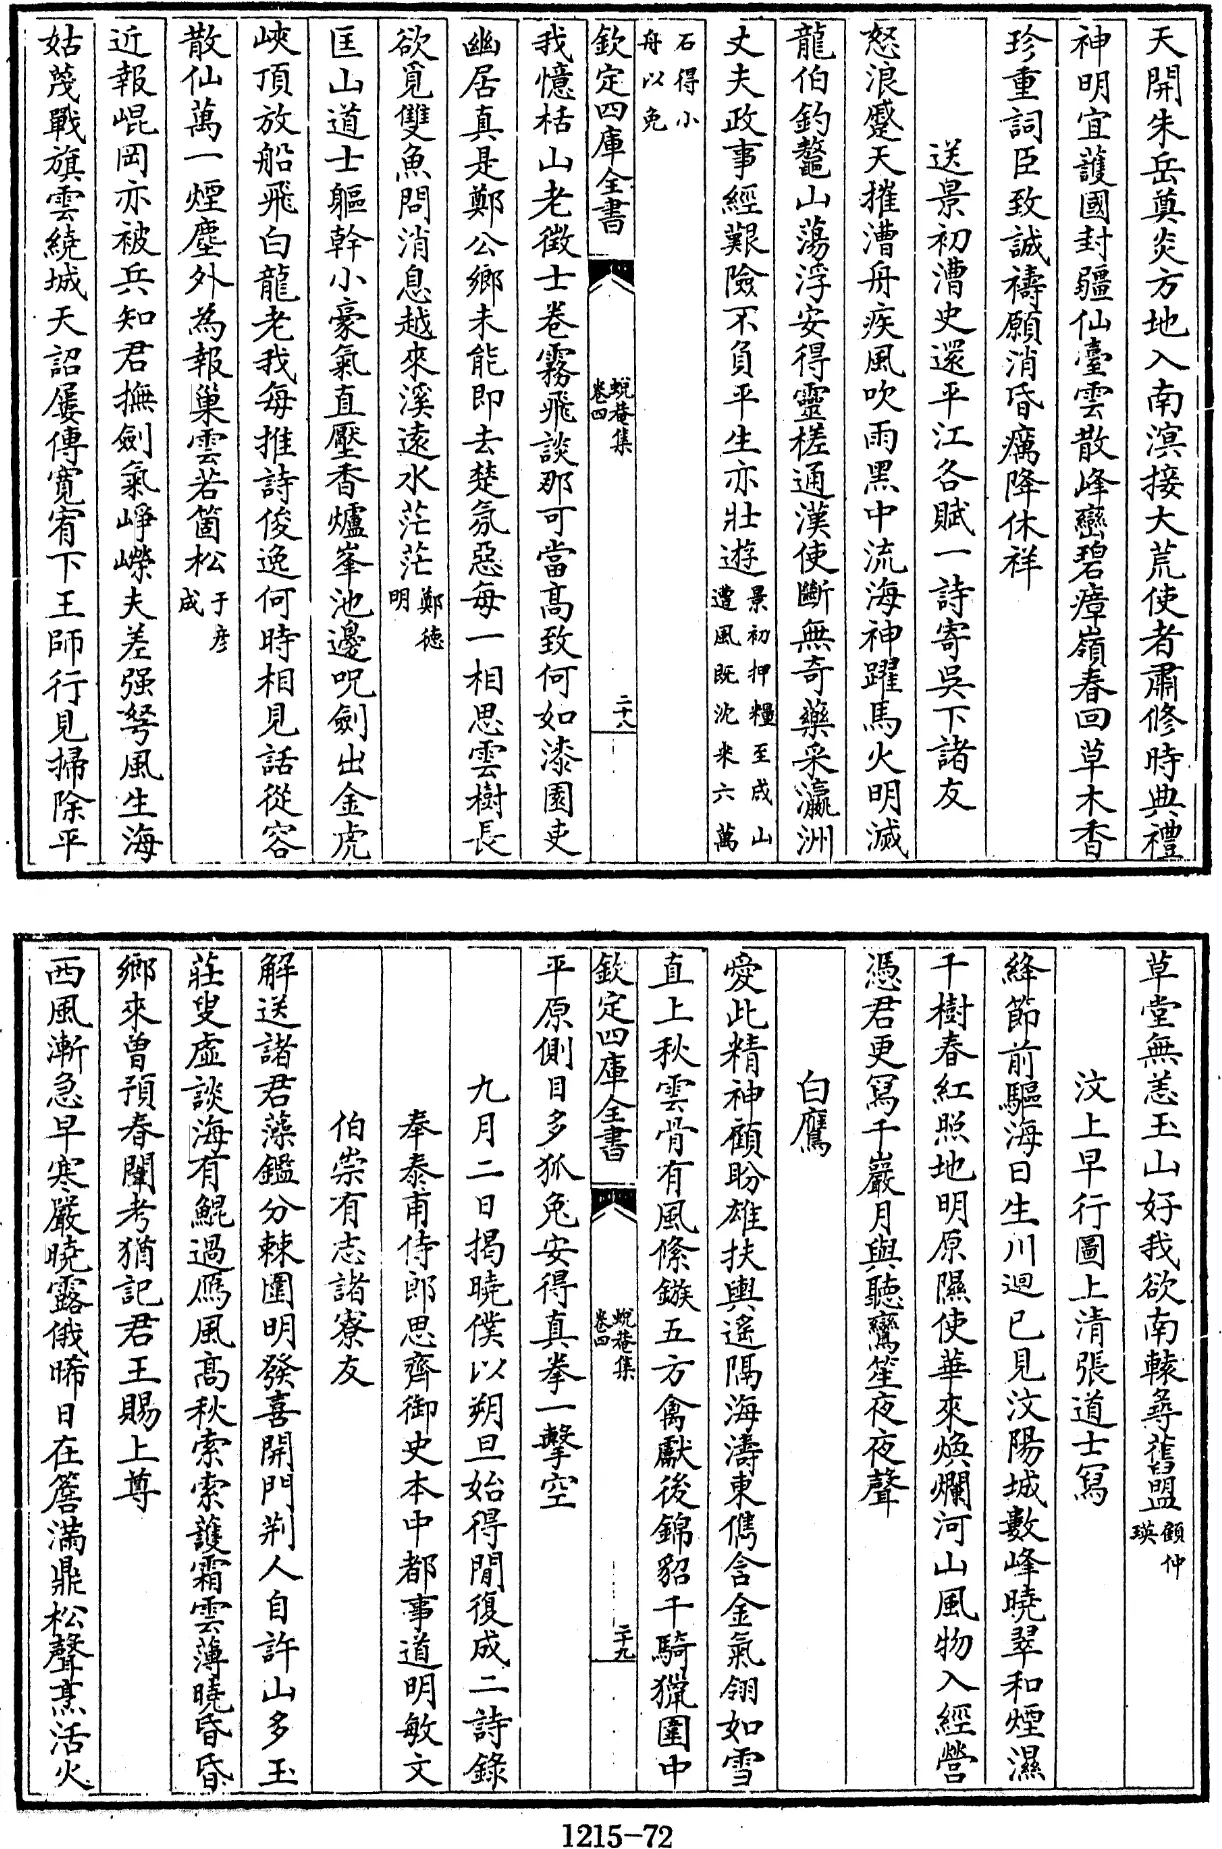 天開朱岳奠炎方地入南溟接大荒使者肅修時典禮
神明宜䕶國封疆仙臺雲散峰巒碧瘴嶺春回草木香
珍重詞臣致誠禱願消昏癘降休祥
送景初漕史還平江各賦一詩寄吳下諸友
怒浪蹙天摧漕舟疾風吹雨黑中流海神躍馬火明滅
龍伯釣鼇山蕩浮安得靈槎通漢使斷無奇藥采瀛洲
丈夫政事經艱險不負平生亦壯遊景初押糧至成山
遭風既沈米六萬
石得小
舟以免
欽定四庫全書
蛻菴集
卷四
二十八
我憶栝山老徵士卷霧飛談那可當高致何如漆園吏
幽居真是鄭公鄉未能即去楚氛惡每一相思雲樹長
欲覓雙魚問消息越來溪遠水茫茫鄭德
明
匡山道士軀幹小豪氣直壓香爐峯池邊呪劍出金虎
峽頂放船飛白龍老我每推詩俊逸何時相見話從容
散仙萬一煙塵外為報巢雲若箇松于彦
成
近報崐岡亦被兵知君撫劍氣崢嶸夫差强弩風生海
姑蔑戰旗雲繞城天詔屢傳寛宥下王師行見掃除平
草堂無恙玉山好我欲南轅尋舊盟顧仲
瑛
汶上早行圖上清張道士寫
絳節前驅海日生川迴已見汶陽城數峰曉翠和煙濕
千樹春紅照地明原隰使華來煥爛河山風物入經營
憑君更寫千巖月與聽鸞笙夜夜聲
白鷹
愛此精神顧盼雄扶輿遙隔海濤東儁含金氣翎如雪
直上秋雲骨有風絛鏇五方禽獻後錦貂千騎獵圍中
欽定四庫全書
蛻菴集
卷四
二十九
平原側目多狐兔安得真拳一擊空
九月二日揭曉僕以朔旦始得閒復成二詩錄
奉泰甫侍郎思齊御史本中都事道明敏文
伯崇有志諸寮友
解送諸君藻鑑分棘圍明發喜開門荆人自許山多玉
莊叟虛談海有鯤過鴈風高秋索索護霜雲薄曉昏昏
鄉來曾預春闈考猶記君王賜上尊
西風漸急早寒嚴曉露俄晞日在簷滿鼎松聲烹活火
1215-72